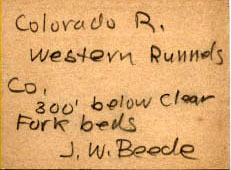 Colorado R.
Western Runnels
Co.
300' below Clear
Fork beds
J. W. Beede